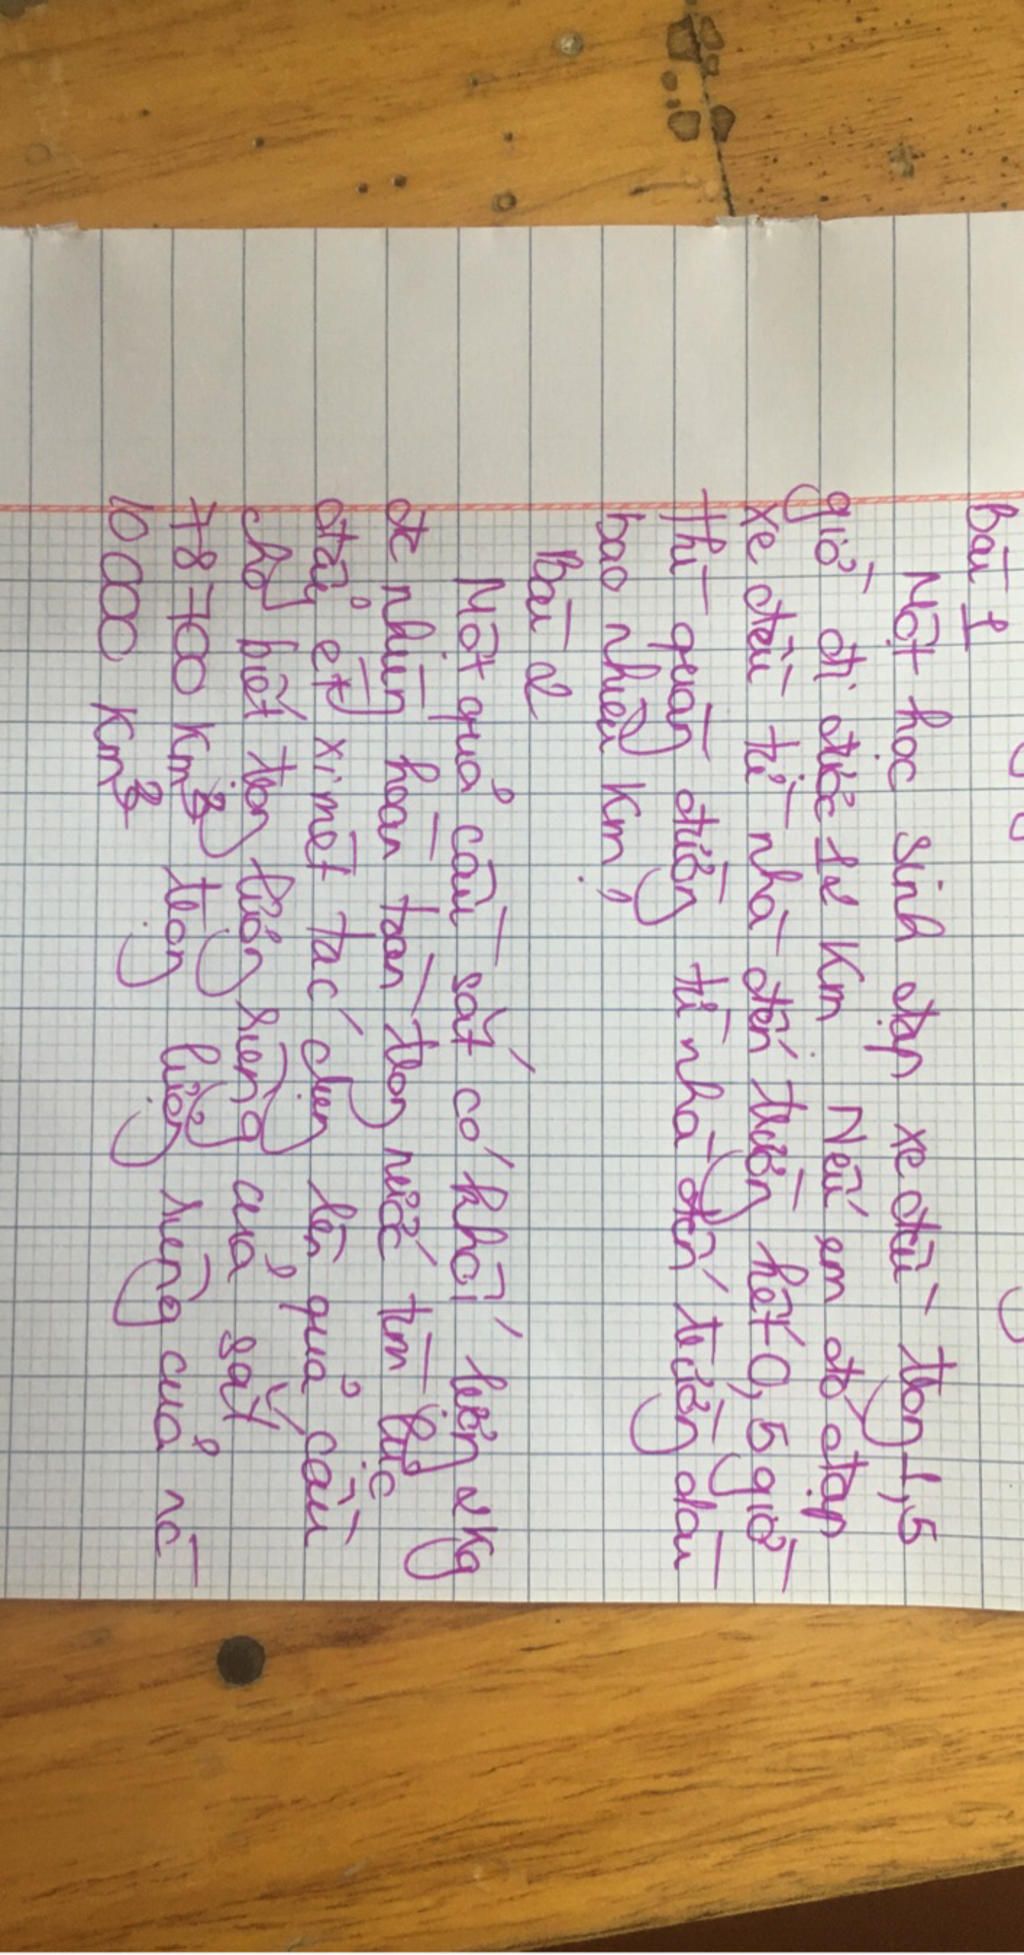 Bài 1
Một học sinh đạp xe đều trong 1,5
giờ đi được 12 Km. Nếu em đó đạp
xe đều từ nhà đến trường hết 0,5 giờ
thì quãng đường từ nhà đến trường dài
bao nhiêu Km?
Bài 2
Một quả cầu sắt có khối lượng 2 Kg
đc nhúng hoàn toàn trong nước tìm lực
đẩy xi mét tác dụng lên quả cầu
cho biết trọng lượng riêng của sắt
78700 Km3 trọng lượng riêng của nc
10000 Km3